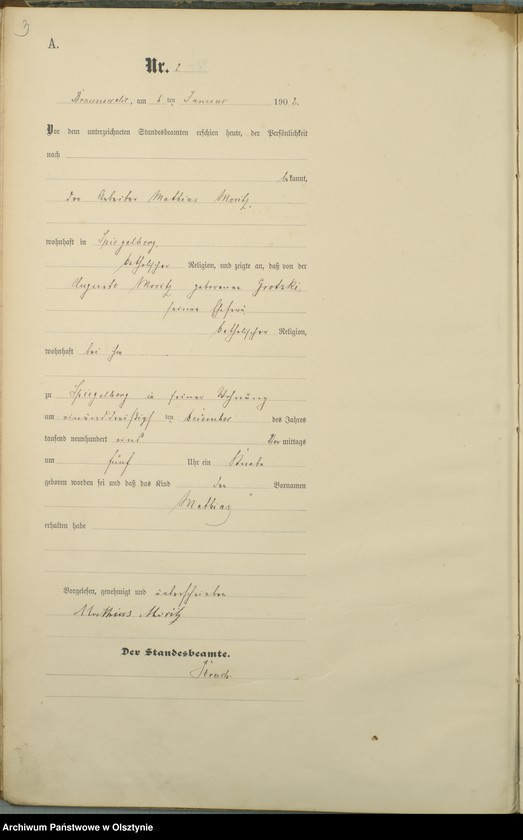 3
A.
Nr. 2
Braunswalde, am 6 ten Januar 1902.
Vor dem unterzeichneten Standesbeamten erschien heute, der Persönlichkeit
nach
bekannt,
der Arbeiter Mathias Moritz,
wohnhaft in Spiegelberg,
katholischer Religion, und zeigte an, daß von der
Auguste Moritz geborenen Grotzki
seiner Ehefrau
katholischer Religion,
wohnhaft bei ihm
zu Spiegelberg in seiner Wohnung
am einunddreißigsten ten Dezember des Jahres
tausend neunhundert eins Vor mittags
um fünf Uhr ein Knabe
geboren worden sei und daß das Kind den Vornamen
Mathias
erhalten habe
Vorgelesen, genehmigt und unterschrieben
Mathias Moritz
Der Standesbeamte.
Archiwum Państwowe w Olsztynie